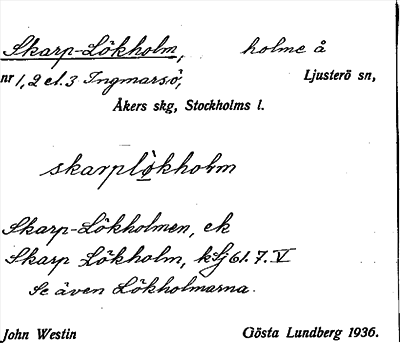 Skarp-Lökholm, holme å
nr 1, 2 el. 3 Ingmarsö, Ljusterö sn,
Åkers skg, Stockholms l.
skarplö̀kholm
Skarp-Lökholmen, ek
Skarp Lökholm, ksj 61. 7. V
Se även Lökholmarna.
John Westin Gösta Lundberg 1936.